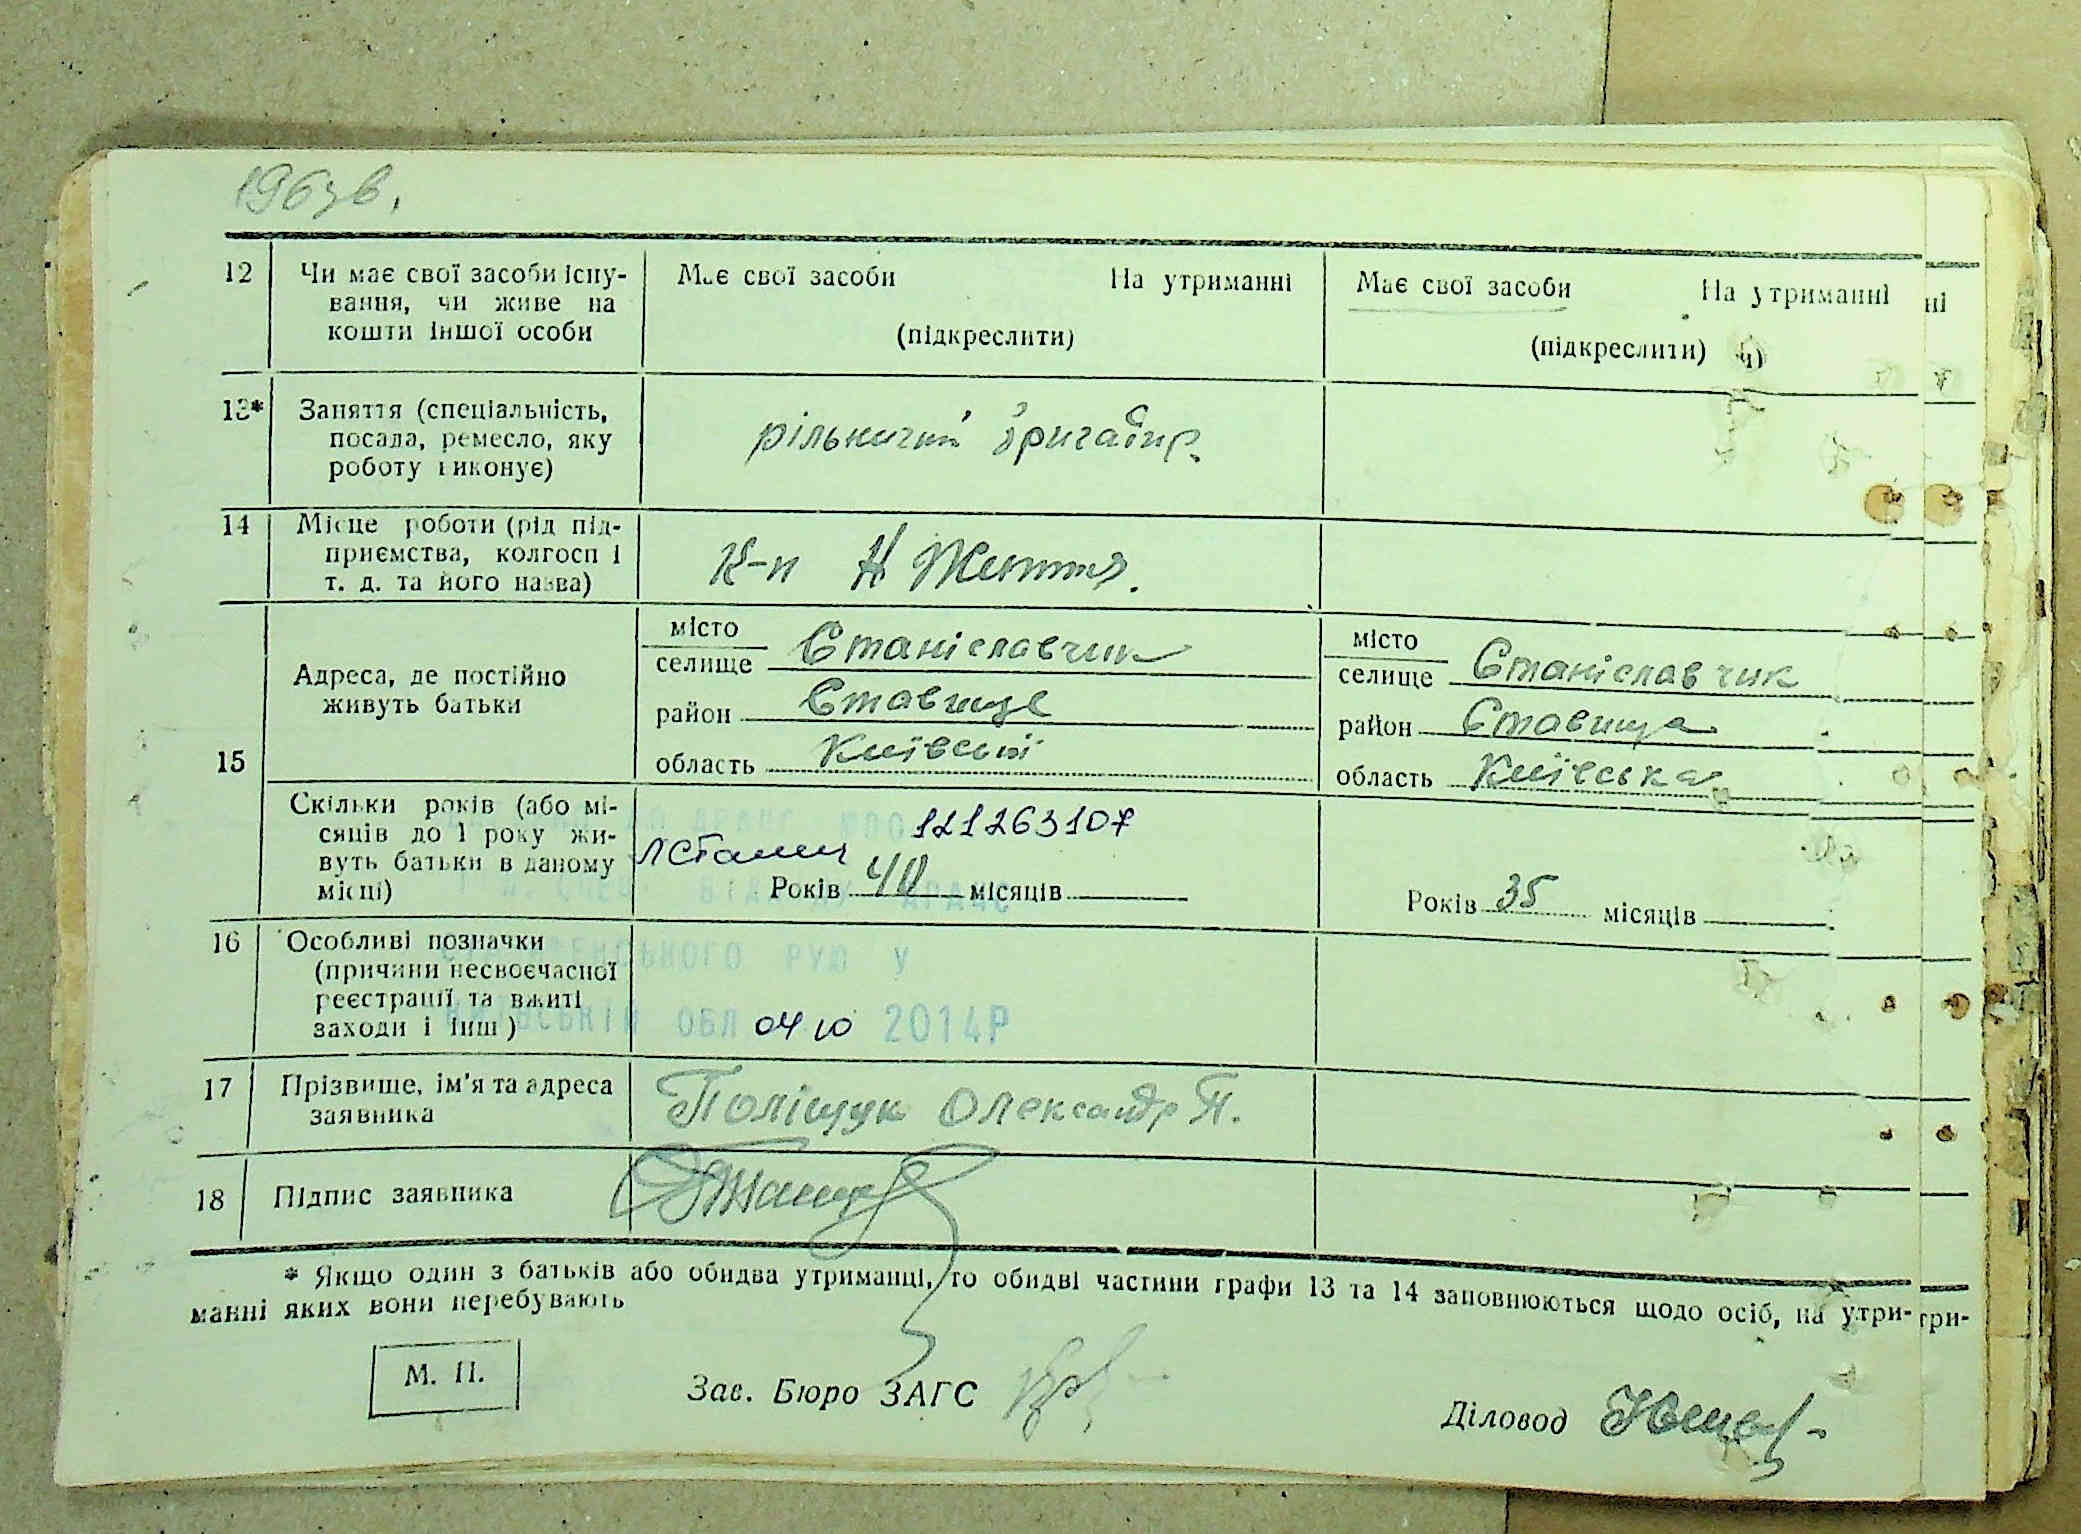 12 Чи має свої засоби існу-
вання, чи живе на
кошти іншої особи
Має свої засоби На утриманні
(підкреслити)
Має свої засоби На утриманні
(підкреслити)
13* Заняття (спеціальність,
посада, ремесло, яку
роботу виконує)
рільничий бригадир.
14 Місце роботи (рід під-
приємства, колгосп і
т. д. та його назва)
К-п Н Життя.
15 Адреса, де постійно
живуть батьки
місто
селище Станіславчик
район Ставище
область Київській
місто
селище Станіславчик
район Ставища
область Київська
Скільки років (або мі-
сяців до 1 року жи-
вуть батьки в даному
місці)
121263107
Років 40 місяців
Років 35 місяців
16 Особливі позначки
(причини несвоєчасної
реєстрації та вжиті
заходи і інш)
ВІДДІЛУ ДРАЦС
РУЮ У
КИЇВСЬКІЙ ОБЛ 04 10 2014Р
17 Прізвище, ім'я та адреса
заявника
Поліщук Олександр П.
18 Підпис заявника
* Якщо один з батьків або обидва утриманці, то обидві частини графи 13 та 14 заповнюються щодо осіб, на утри-
манні яких вони перебувають
М. П.
Зав. Бюро ЗАГС
Діловод